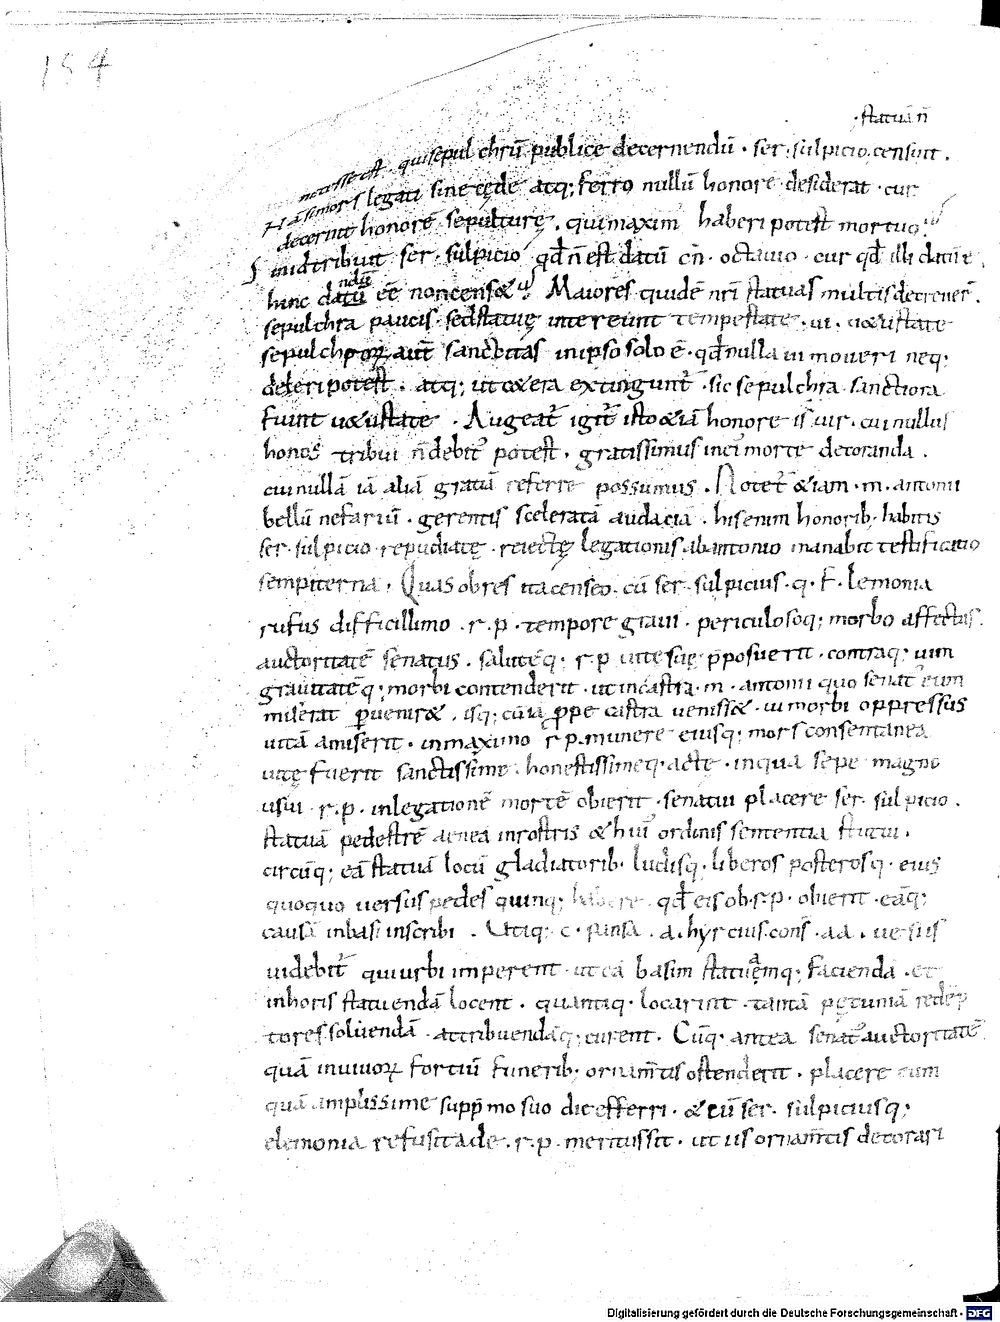 154
·statuā n̄
necesse est · qui sepulchrū publice decernendū · ser · sulpicio censuit .
Hā si mors legati sine cęde atq; ferro nullū honorē desiderat · cur
decernit honorē sepulturę . qui maximus haberi potest mortuo
S in id tribuit ser · sulpicio qd̄ n̄ est datū cn̄ · octauio · cur qd̄ illi datū ē ,
hinc datū ndū eē non cens& Maiores quidē nr̄i statuas multis decreuer̄ .
sepulchra paucis · sed statuę intereunt tempestate · ui · u&ustate
sepulchroꝝ aut̄ sanctitas in ipso solo ē · qd̄ nulla ui moueri neq;
deleri potest . atq; ut c&era extinguunt̄ · sic sepulchra sanctiora
fiunt u&ustate . Augeat̄ igit̄ isto &iā honore is uir · cui nullus
honos tribui n̄ debit᷒ potest . gratissimus in ei᷒ morte decoranda .
cui nullā iā aliā gratiā referre possumus . Notet̄ &iam · m · antonii
bellū nefariū · gerentis scelerata audacia . his enim honorib; habitis
ser · sulpicio repudiatę · reiectę legationis ab antonio manabit testificatio
sempiterna . Quas ob res ita censeo . cū ser · sulpicius · q · f · lemonia
rufus difficillimo · r · p · tempore graui · periculosoq; morbo affectus .
auctoritatē senatus . salutēq; r p uitę suę p̄posuerit · contraq; uim
grauitatēq; morbi contenderit · ut in castra · m · antonii quo senat᷒ eum
miserat ꝑuenir& . isq; cū iā ꝓpe castra uenisset · ui morbi oppressus
uitā amiserit · in maximo r p · munere eiusq; mors consentanea
uitę fuerit sanctissime · honestissimeq; actę · in qua sepe magno
usui · r · p · in legationē mortē obierit · senatui placere ser · sulpicio .
statuā pedestrē aenea in rostris & hui᷒ ordinis sententia statui .
circūq; eā statuā locū gladiatorib; ludisq; liberos posterosq; eius
quoquo uersus pedes quinq; habere · qd̄ eis ob · r · p · obierit · eāq;
causā in basi inscribi . Utiq; c · pansa . a · hyrcius · cons̄ · a a . ue siis
uidebit̄ qui urbi imperent · ut ea basim statuāmq; facienda · et
in horis statuendā locent . quantiq; locarint · tantā pecuniā redēp
tores soluendā · attribuendāq; curent . Cūq; antea senat᷒ auctoritatē
quā in uiuoꝝ fortiū funerib; ornam̄tis ostenderit . placere cum
quā amplissime supp̄mo suo die efferri . & cū ser · sulpicius q;
elemonia refusita de · r · p · meritus sit · ut iis ornam̄tis decorari
Digitalisierung gefördert durch die Deutsche Forschungsgemeinschaft - DFG